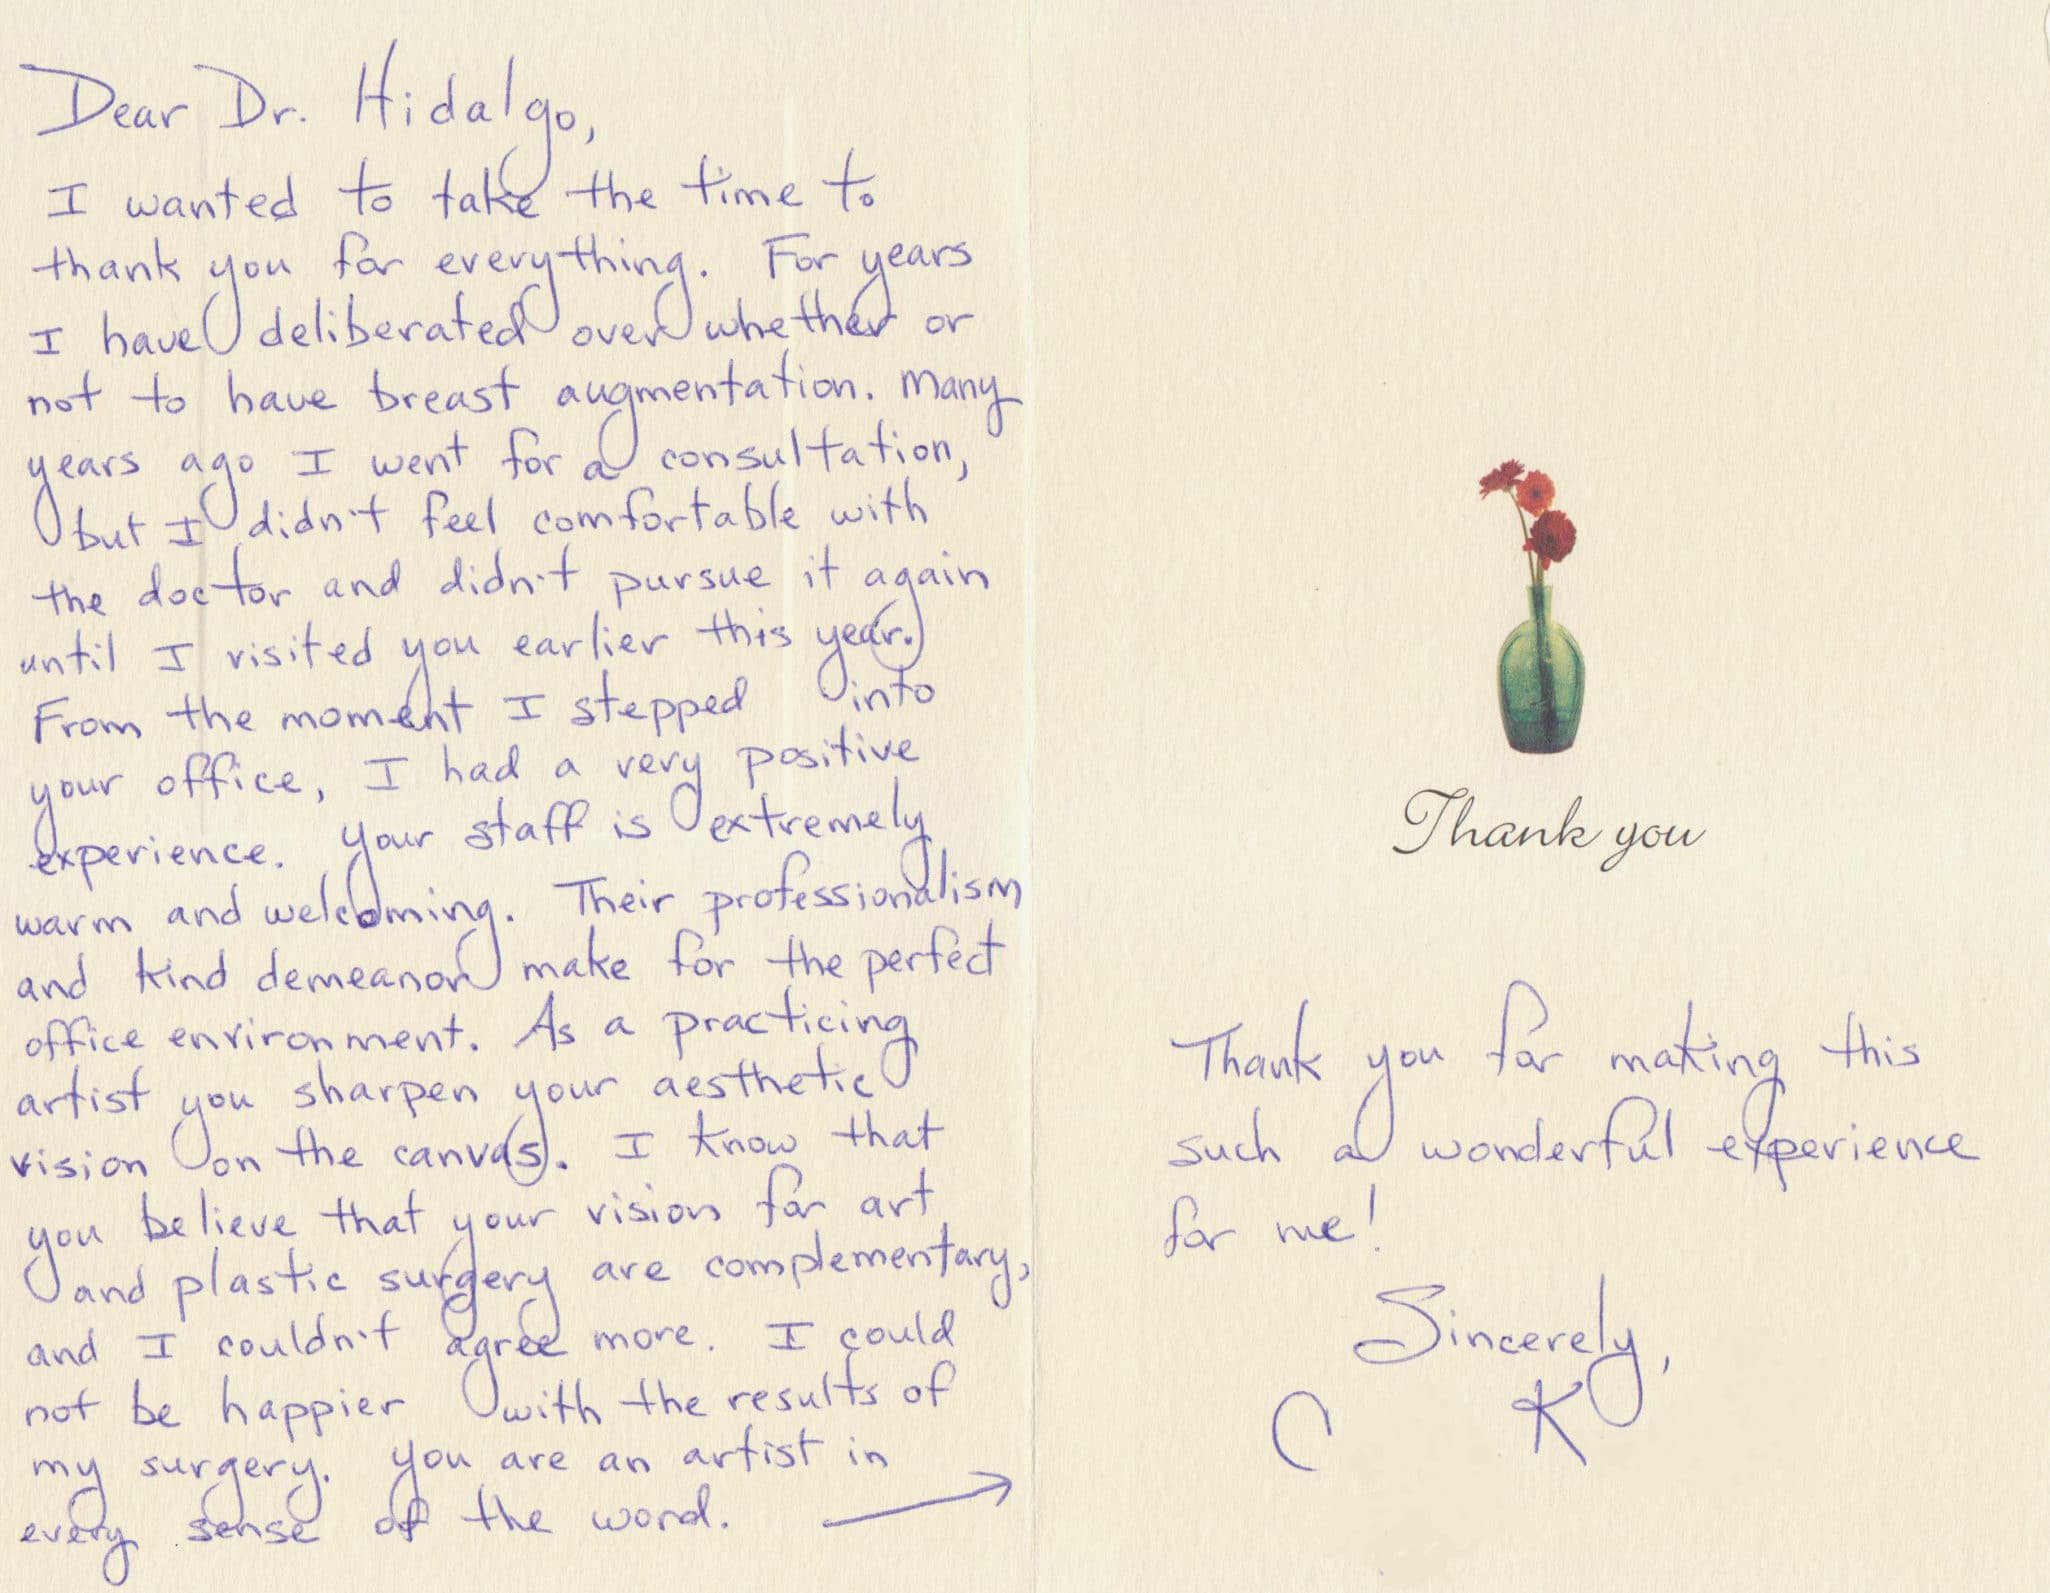 Dear Dr. Hidalgo,
I wanted to take the time to
thank you for everything. For years
I have deliberated over whether or
not to have breast augmentation. Many
years ago I went for a consultation,
but I didn't feel comfortable with
the doctor and didn't pursue it again
until I visited you earlier this year.
From the moment I stepped into
your office, I had a very positive
experience. Your staff is extremely
warm and welcoming. Their professionalism
and kind demeanor make for the perfect
office environment. As a practicing
artist you sharpen your aesthetic
vision on the canvas. I know that
you believe that your vision for art
and plastic surgery are complementary,
and I couldn't agree more. I could
not be happier with the results of
my surgery. You are an artist in
every sense of the word.
Thank you
Thank you for making this
such a wonderful experience
for me!
Sincerely,
C K